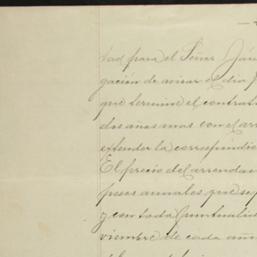 tad para el Señor Ján
gación de avisar el día
que termine el contrat
dos años mas con el arr
extender la correspondie
El precio del arrendam
pesos anuales que se p
y con toda puntualid
viembre de cada año